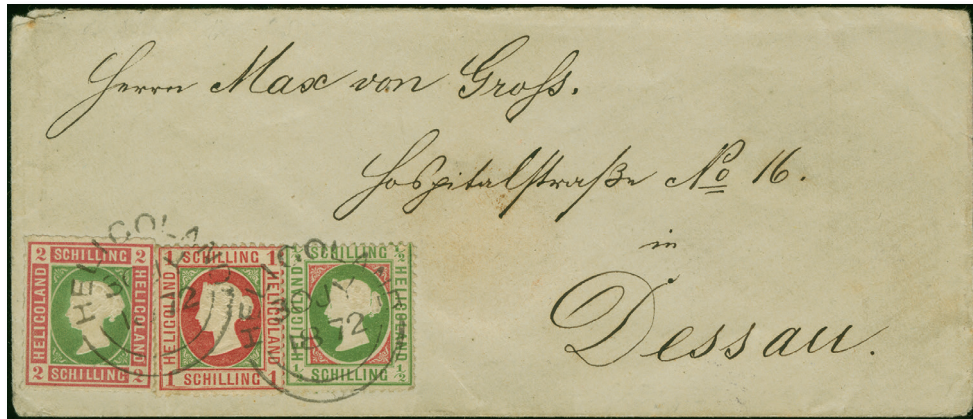 Herrn Max von Groß.
Hospitalstraße No 16.
in
Dessau.
2 SCHILLING 2
HELIGOLAND
HELIGOLAND
2 SCHILLING 2
1 SCHILLING 1
HELIGOLAND
HELIGOLAND
1 SCHILLING 1
½ SCHILLING ½
HELIGOLAND
HELIGOLAND
½ SCHILLING ½
HELIGOLAND
HELIGOLAND
JY
72